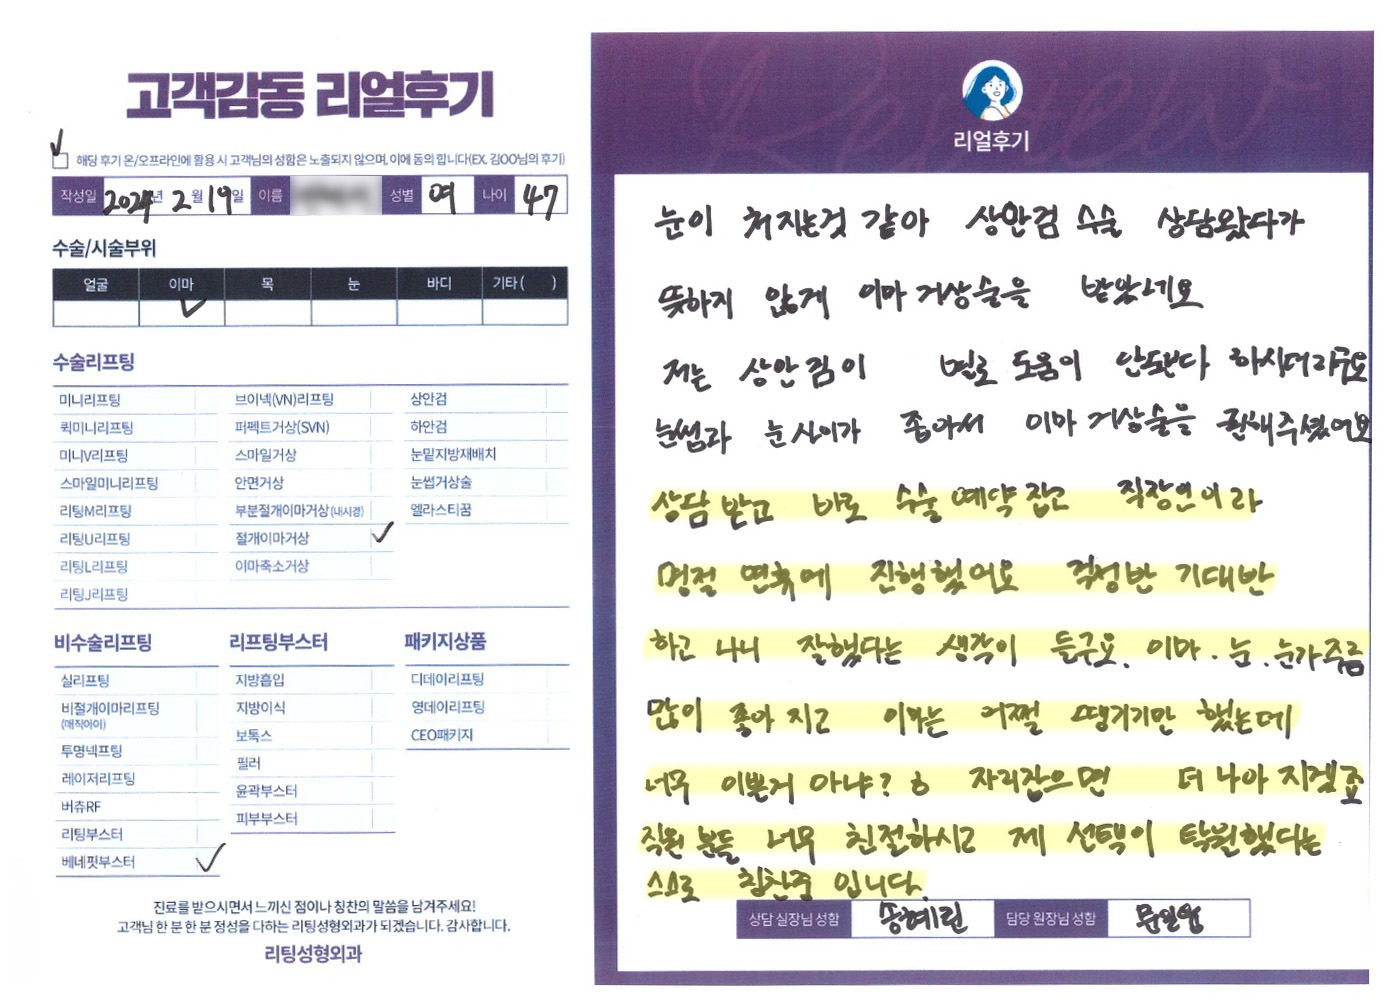 고객감동 리얼후기
해당 후기 온/오프라인에 활용 시 고객님의 성함은 노출되지 않으며, 이에 동의 합니다(EX. 김OO님의 후기)
작성일 2024년 2월 19일 이름 성별 여 나이 47
수술/시술부위
얼굴 이마 목 눈 바디 기타 ( )
수술리프팅
미니리프팅 브이넥(VN)리프팅 상안검
퀵미니리프팅 퍼펙트거상(SVN) 하안검
미니V리프팅 스마일거상 눈밑지방재배치
스마일미니리프팅 안면거상 눈썹거상술
리팅M리프팅 부분절개이마거상(내시경) 엘라스티꿈
리팅U리프팅 절개이마거상
리팅L리프팅 이마축소거상
리팅J리프팅
비수술리프팅 리프팅부스터 패키지상품
실리프팅 지방흡입 디데이리프팅
비절개이마리프팅 지방이식 영데이리프팅
(매직아이) 보톡스 CEO패키지
투명넥프팅 필러
레이저리프팅 윤곽부스터
버츄RF 피부부스터
리팅부스터
베네핏부스터
진료를 받으시면서 느끼신 점이나 칭찬의 말씀을 남겨주세요!
고객님 한 분 한 분 정성을 다하는 리팅성형외과가 되겠습니다. 감사합니다.
리팅성형외과
Review
리얼후기
눈이 처지는것 같아 상안검 수술 상담왔다가
뜻하지 않게 이마 거상술을 받았네요
저는 상안검이 별로 도움이 안된다 하시더라구요
눈썹과 눈 사이가 좁아서 이마 거상술을 권해주셨어요
상담 받고 바로 수술 예약 잡고 직장인이라
명절 연휴에 진행했어요 걱정반 기대반
하고 나니 잘했다는 생각이 들구요. 이마. 눈. 눈가주름
많이 좋아지고 이마는 어쩔 땡기기만 했는데
너무 이쁜거 아냐? ㅎ 자리잡으면 더 나아 지겠죠
직원 분들 너무 친절하시고 제 선택이 탁월했다는
스스로 칭찬중 입니다.
상담 실장님 성함 송혜린 담당 원장님 성함